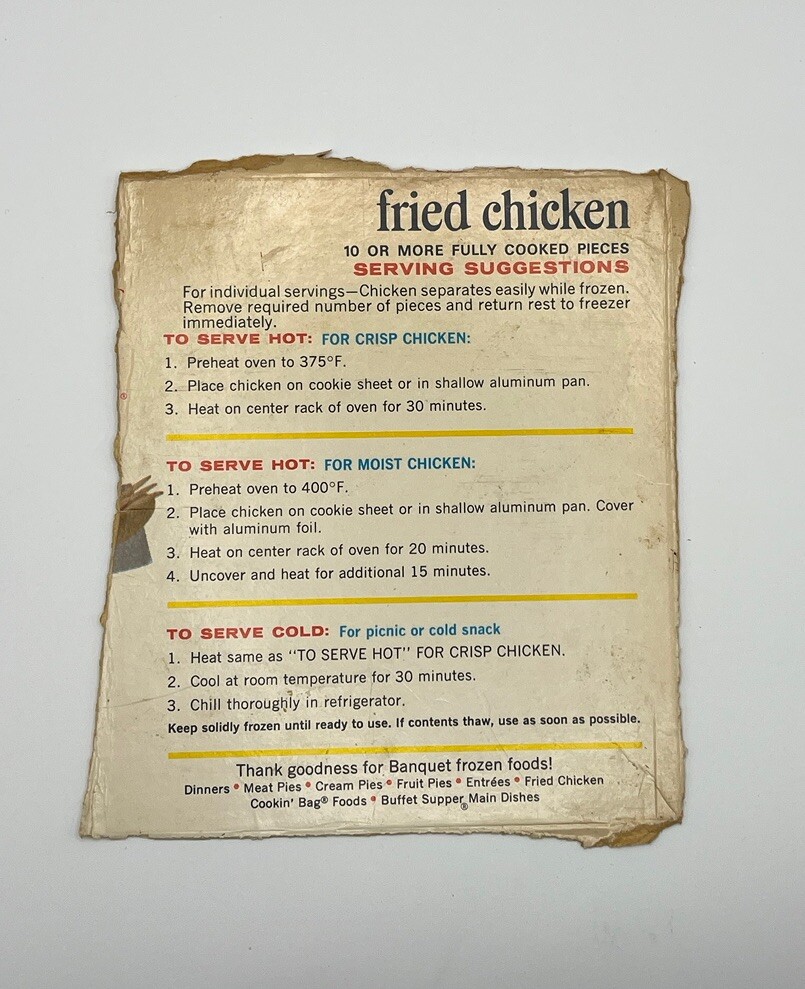 fried chicken
10 OR MORE FULLY COOKED PIECES
SERVING SUGGESTIONS
For individual servings—Chicken separates easily while frozen.
Remove required number of pieces and return rest to freezer
immediately.
TO SERVE HOT: FOR CRISP CHICKEN:
1. Preheat oven to 375°F.
2. Place chicken on cookie sheet or in shallow aluminum pan.
3. Heat on center rack of oven for 30 minutes.
TO SERVE HOT: FOR MOIST CHICKEN:
1. Preheat oven to 400°F.
2. Place chicken on cookie sheet or in shallow aluminum pan. Cover
with aluminum foil.
3. Heat on center rack of oven for 20 minutes.
4. Uncover and heat for additional 15 minutes.
TO SERVE COLD: For picnic or cold snack
1. Heat same as “TO SERVE HOT” FOR CRISP CHICKEN.
2. Cool at room temperature for 30 minutes.
3. Chill thoroughly in refrigerator.
Keep solidly frozen until ready to use. If contents thaw, use as soon as possible.
Thank goodness for Banquet frozen foods!
Dinners • Meat Pies • Cream Pies • Fruit Pies • Entrées • Fried Chicken
Cookin' Bag® Foods • Buffet Supper® Main Dishes